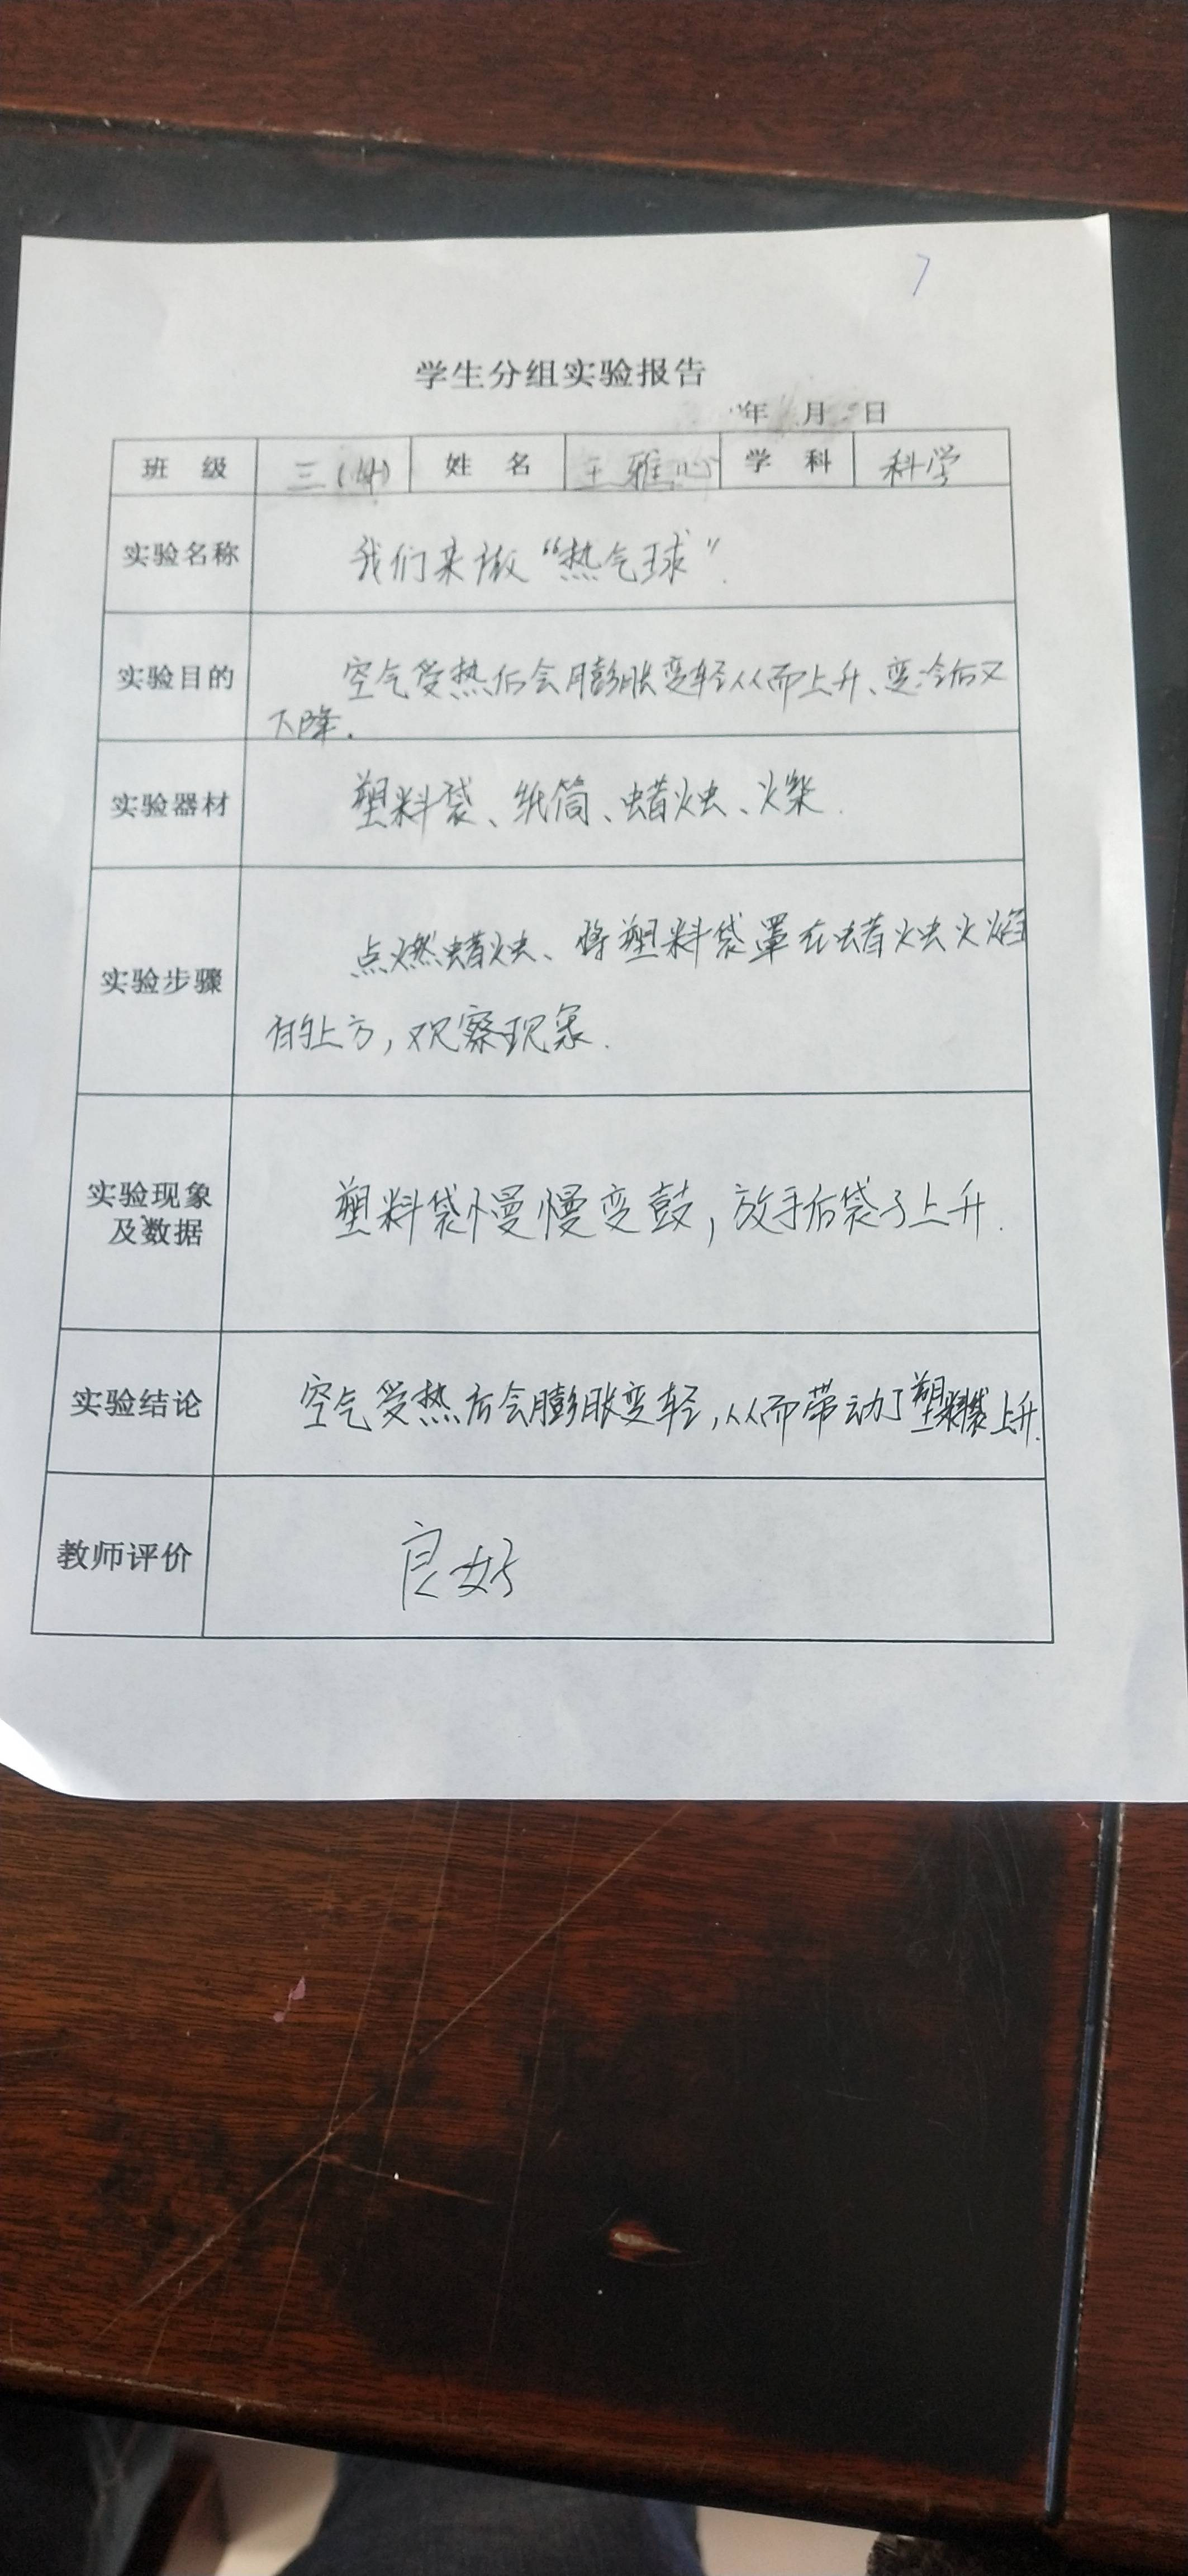 7
学生分组实验报告
年 月 日
班 级 三(4) 姓 名 王雅心 学 科 科学
实验名称 我们来做“热气球”.
实验目的 空气受热后会膨胀变轻从而上升、变冷后又
下降.
实验器材 塑料袋、纸筒、蜡烛、火柴.
实验步骤 点燃蜡烛、将塑料袋罩在蜡烛火焰
的上方,观察现象.
实验现象
及数据 塑料袋慢慢变鼓,放手后袋子上升.
实验结论 空气受热后会膨胀变轻,从而带动了塑料袋上升.
教师评价 良好